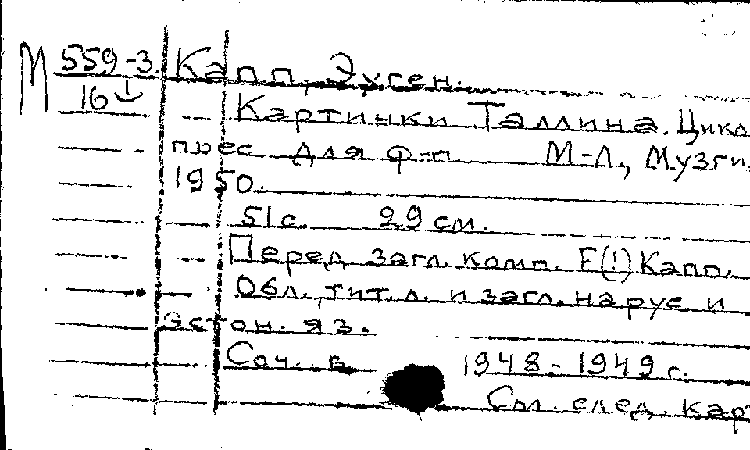 М 559-3 Капп, Эуген.
16
Картинки Таллина. Цикл
пьес для ф-п. М-Л., Музги
1950.
51 с. 29 см.
Перед загл. комп. Е(!) Капп.
Обл., тит. л. и загл. на рус и
эстон. яз.
Соч. в 1948-1949 г.
См. след. кар